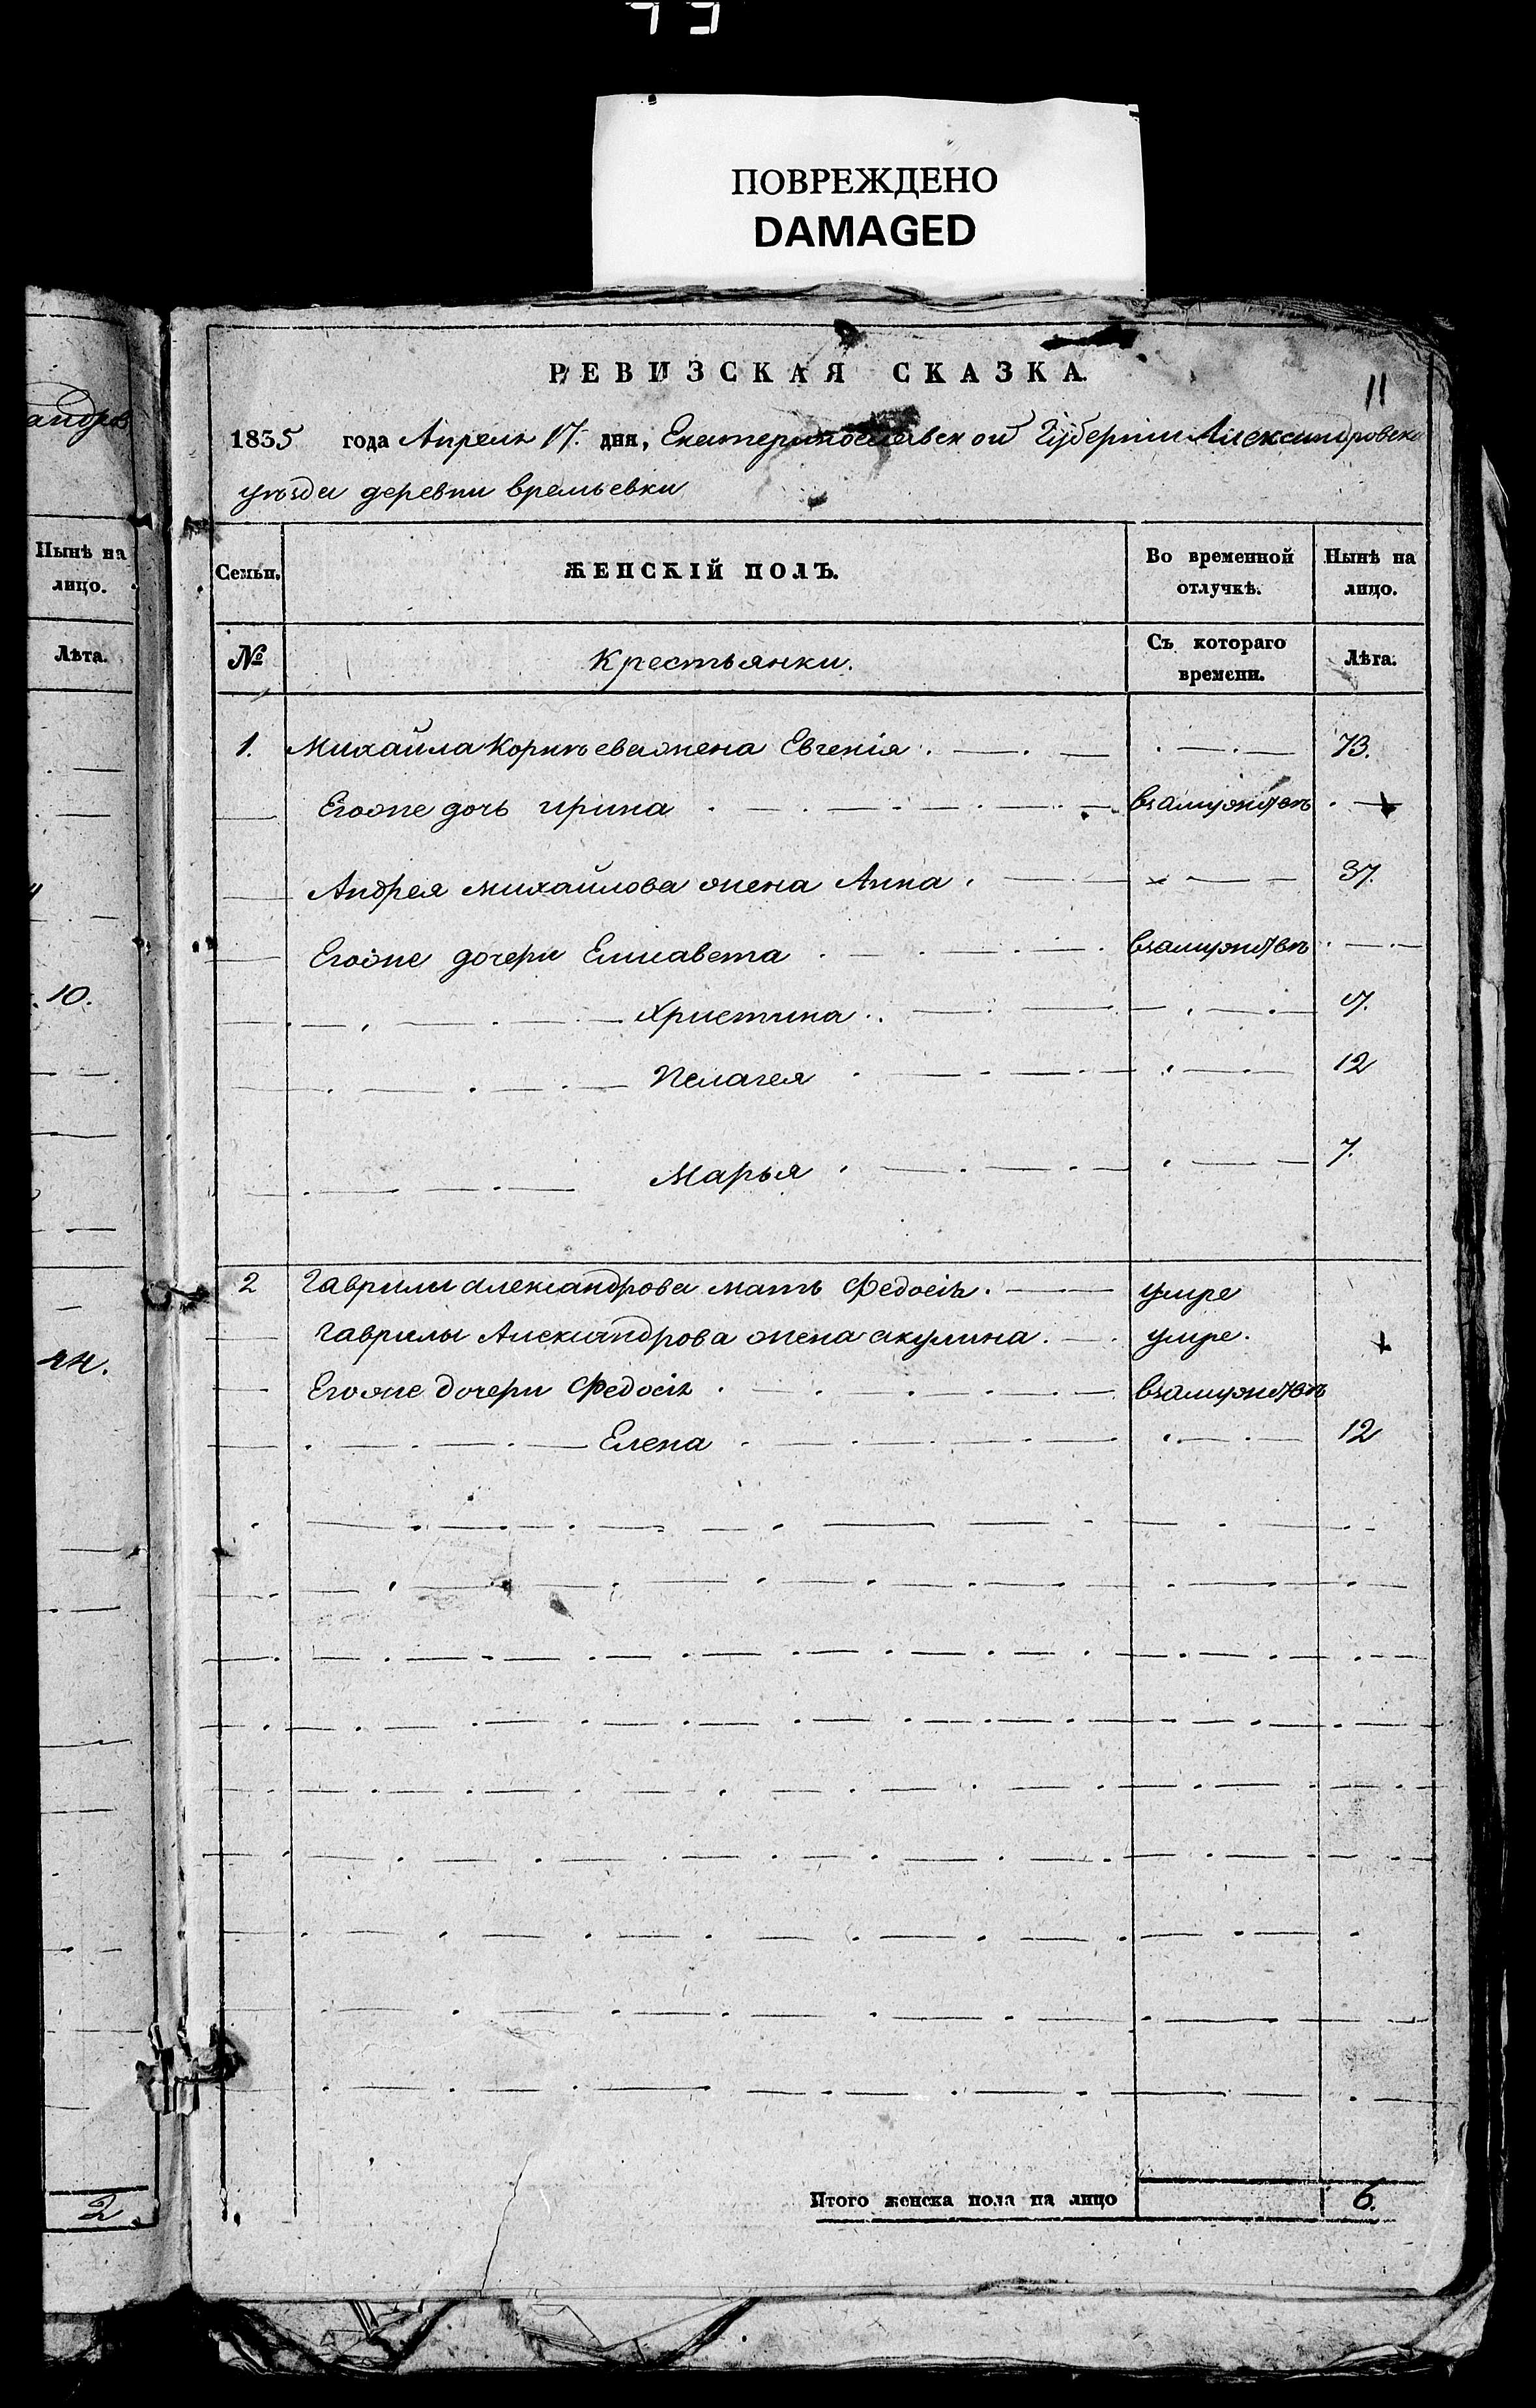 ПОВРЕЖДЕНО
DAMAGED
андров
Нынѣ на
лицо.
Лѣта.
10.
24.
2
РЕВИЗСКАЯ СКАЗКА.
11
1835 года Апреля 17. дня, Екатеринославской Губернии Александровско
уѣзда деревни времьевки
Семьи. ЖЕНСКІЙ ПОЛЪ. Во временной отлучкѣ. Нынѣ на лицо.
№ Крестьянки. Съ котораго времени. Лѣта.
1. Михайла Корнѣева жена Евгенія. 73.
Егоже дочь ирина взамужствѣ
Андрея михайлова жена Анна. 37.
Егоже дочери Елисавета взамужствѣ
Христина. 17.
Пелагея 12
Марья 7.
2 Гаврилы александрова мать Федосія. умре
Гаврилы Александрова жена акулина. умре.
Егоже дочери Федосія взамужствѣ
Елена 12
Итого женска пола на лицо 6.